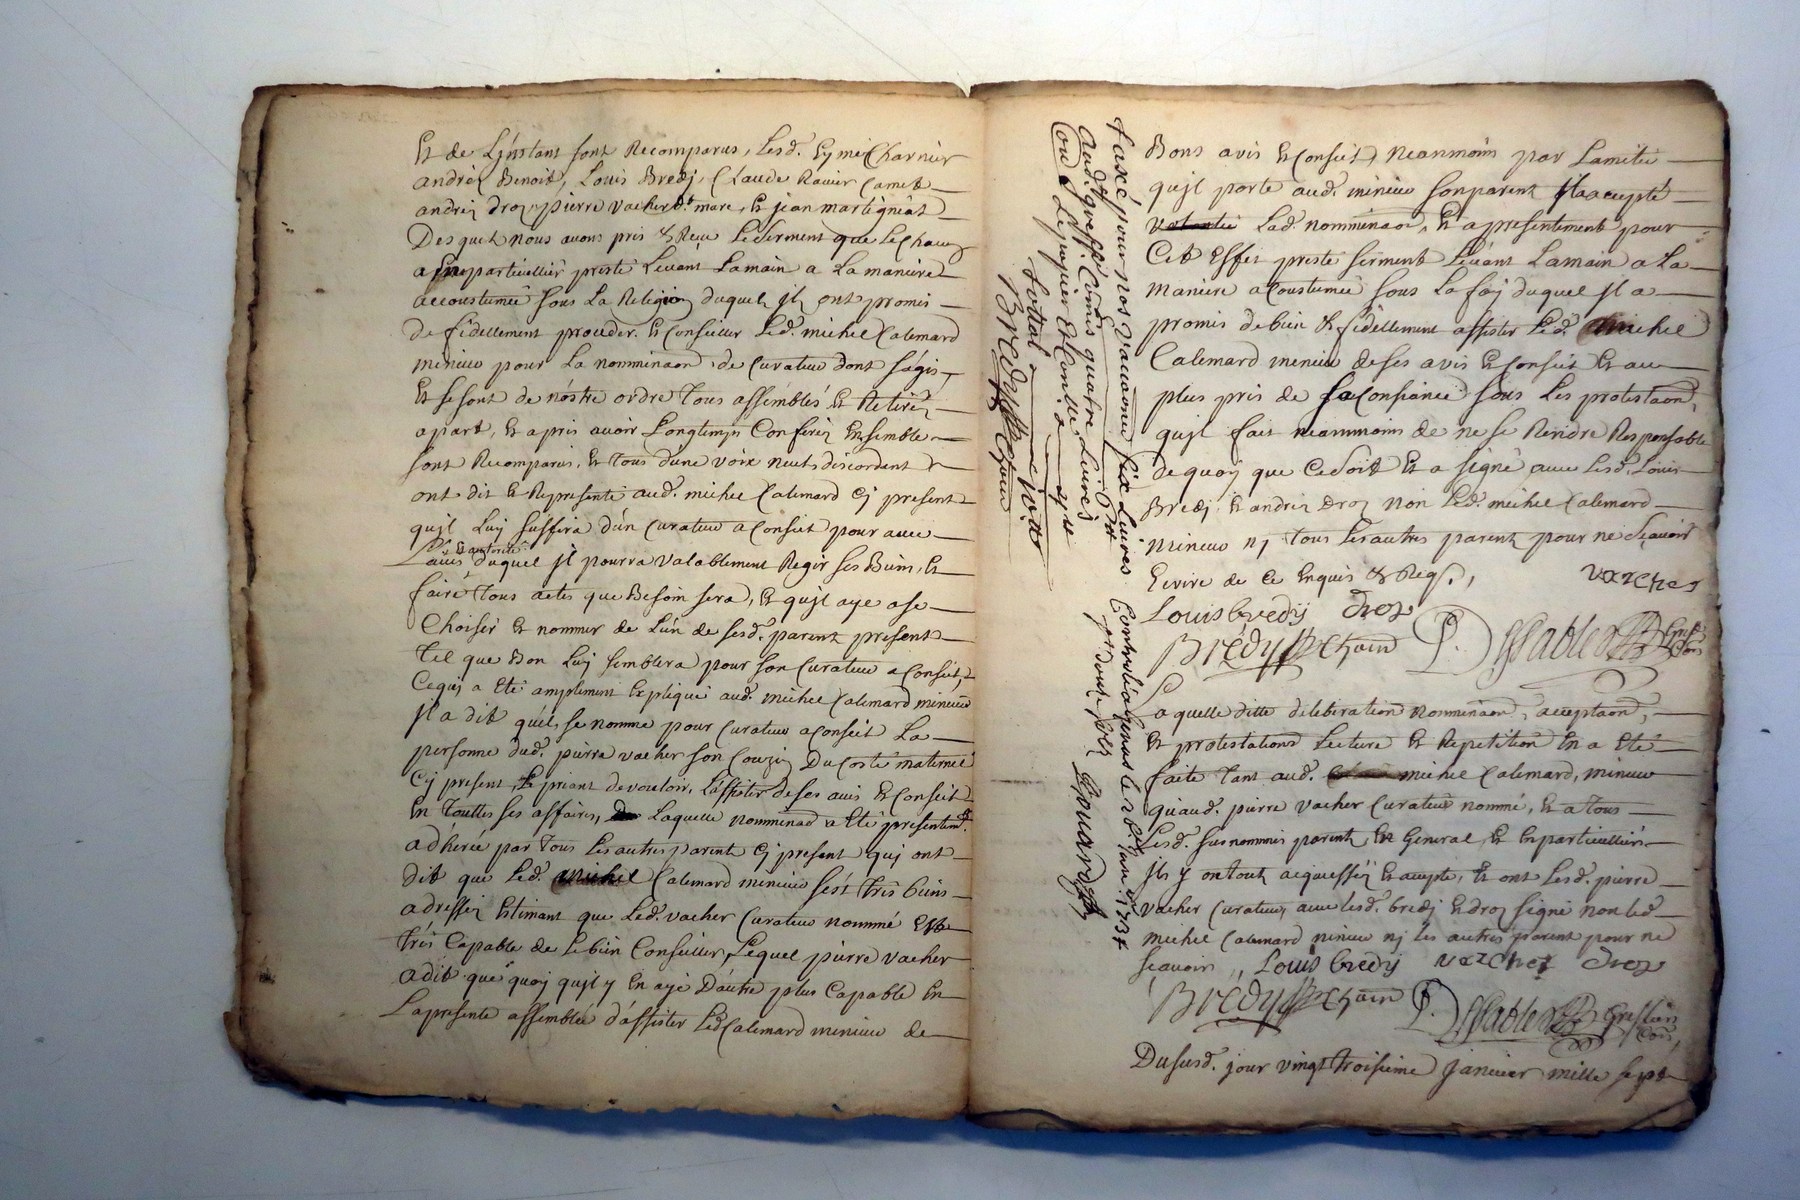 Et de L'jnstant sont Recomparus, Lesd. Eyme Charnier
andréz Benoit, Louis Bredj, Claude Ravier Camet
andréz droz, pierre vacher d.t mare, Et jean martignat
Desquels nous avons pris & Receu Le serment que Le chacun
a part prêté Levant La main a La maniere
accoustumée sous La Religion duquel jls ont promis
de fidellement proceder Et Conseiller Led. michel Calemard
mineur pour La nomminaon de Curateur dont s'agis,
Et se sont de nôstre ordre Tous assémblés Et Retiréz
apart, Et apres avoir Longtemps Conferéz Ensemble
sont Recomparus, Et Tous d'une voix
ont dit Et Representé aud. michel Calemard cy present
qujl Luy suffira d'un Curateur a Conseit pour avec
Et autorité
L'avis duquel jl pourra valablement Regir ses Biens, Et
faire Tous actes que Besoin sera, Et qujl aye a se
Choisir Et nommer de L'un de sesd. parents presents
Tel que Bon Luy semblera pour son Curateur a Conseit,
Cequj a Eté amplement Expliqué aud. michel Calemard mineur
jl a dit qu'il se nomme pour Curateur a Conseit La
personne dud. pierre vacher son Couzin Du Costé maternel
Cy present, Le priant de vouloir L'assister de ses avis Et Conseit
En Touttes ses affaires, Laquelle nomminaon a Eté presentem.t
adherée par Tous Les autres parents cy present quj ont
dit que Led. michel Calemard mineur s'est très biens
adresséz Estimant que Led. vacher Curateur nommé Est
très Capable de Le bien Conseiller, Lequel pierre vacher
a dit que quoj qujl y En aye D'autre plus Capable En
La presente assemblée d'assister Led. Calemard mineur de
Taxé pour nos vacaons six Livres
aud. greff. Comis quatre Livres
ou Le papier Et Conlle
Tottal
Bredy Lechoin
Controllé
et douze sols
Bons avis Et Conseit, neanmoins par L'amitié
qujl porte aud. mineur son parent jl a accepté
Lad. nomminaon, Et a presentement pour
Cet Effet presté serment Levant La main a La
maniere acoustumée sous La foj duquel jl a
promis de bien & fidellement assister Led. michel
Calemard mineur de ses avis Et Conseit Et au
plus pres de sa Consiance sous Les protestaons,
qujl fait neanmoins de ne se Rendre Responsable
de quoy que Ce soit Et a signé avec Lesd. Louis
Bredj, Et andréz Droz non Led. michel Calemard
mineur nj Tous Les autres parents pour ne sçavoir
Ecrire de Ce Enquis & Reqs,
vacher
Louis bredij droz
Bredy Lechoin
Laquelle ditte deliberation nomminaon, acceptaon,
Et protestations Lecture Et Repetition En a Eté
faite Tant aud. michel Calemard, mineur
qu'aud. pierre vacher Curateur nommé, Et a Tous
Lesd. susnommés parents En General, Et En particullier
jls y ont Touts acquesséz Et accepté, Et ont Lesd. pierre
vacher Curateur, avec lesd. bredj Et droz signé non led
michel Calemard mineur nj Les autres parent pour ne
sçavoir,, Louis bredij vacher droz
Bredy Lechoin
Du susd. jour vingt troisieme janvier mille sept